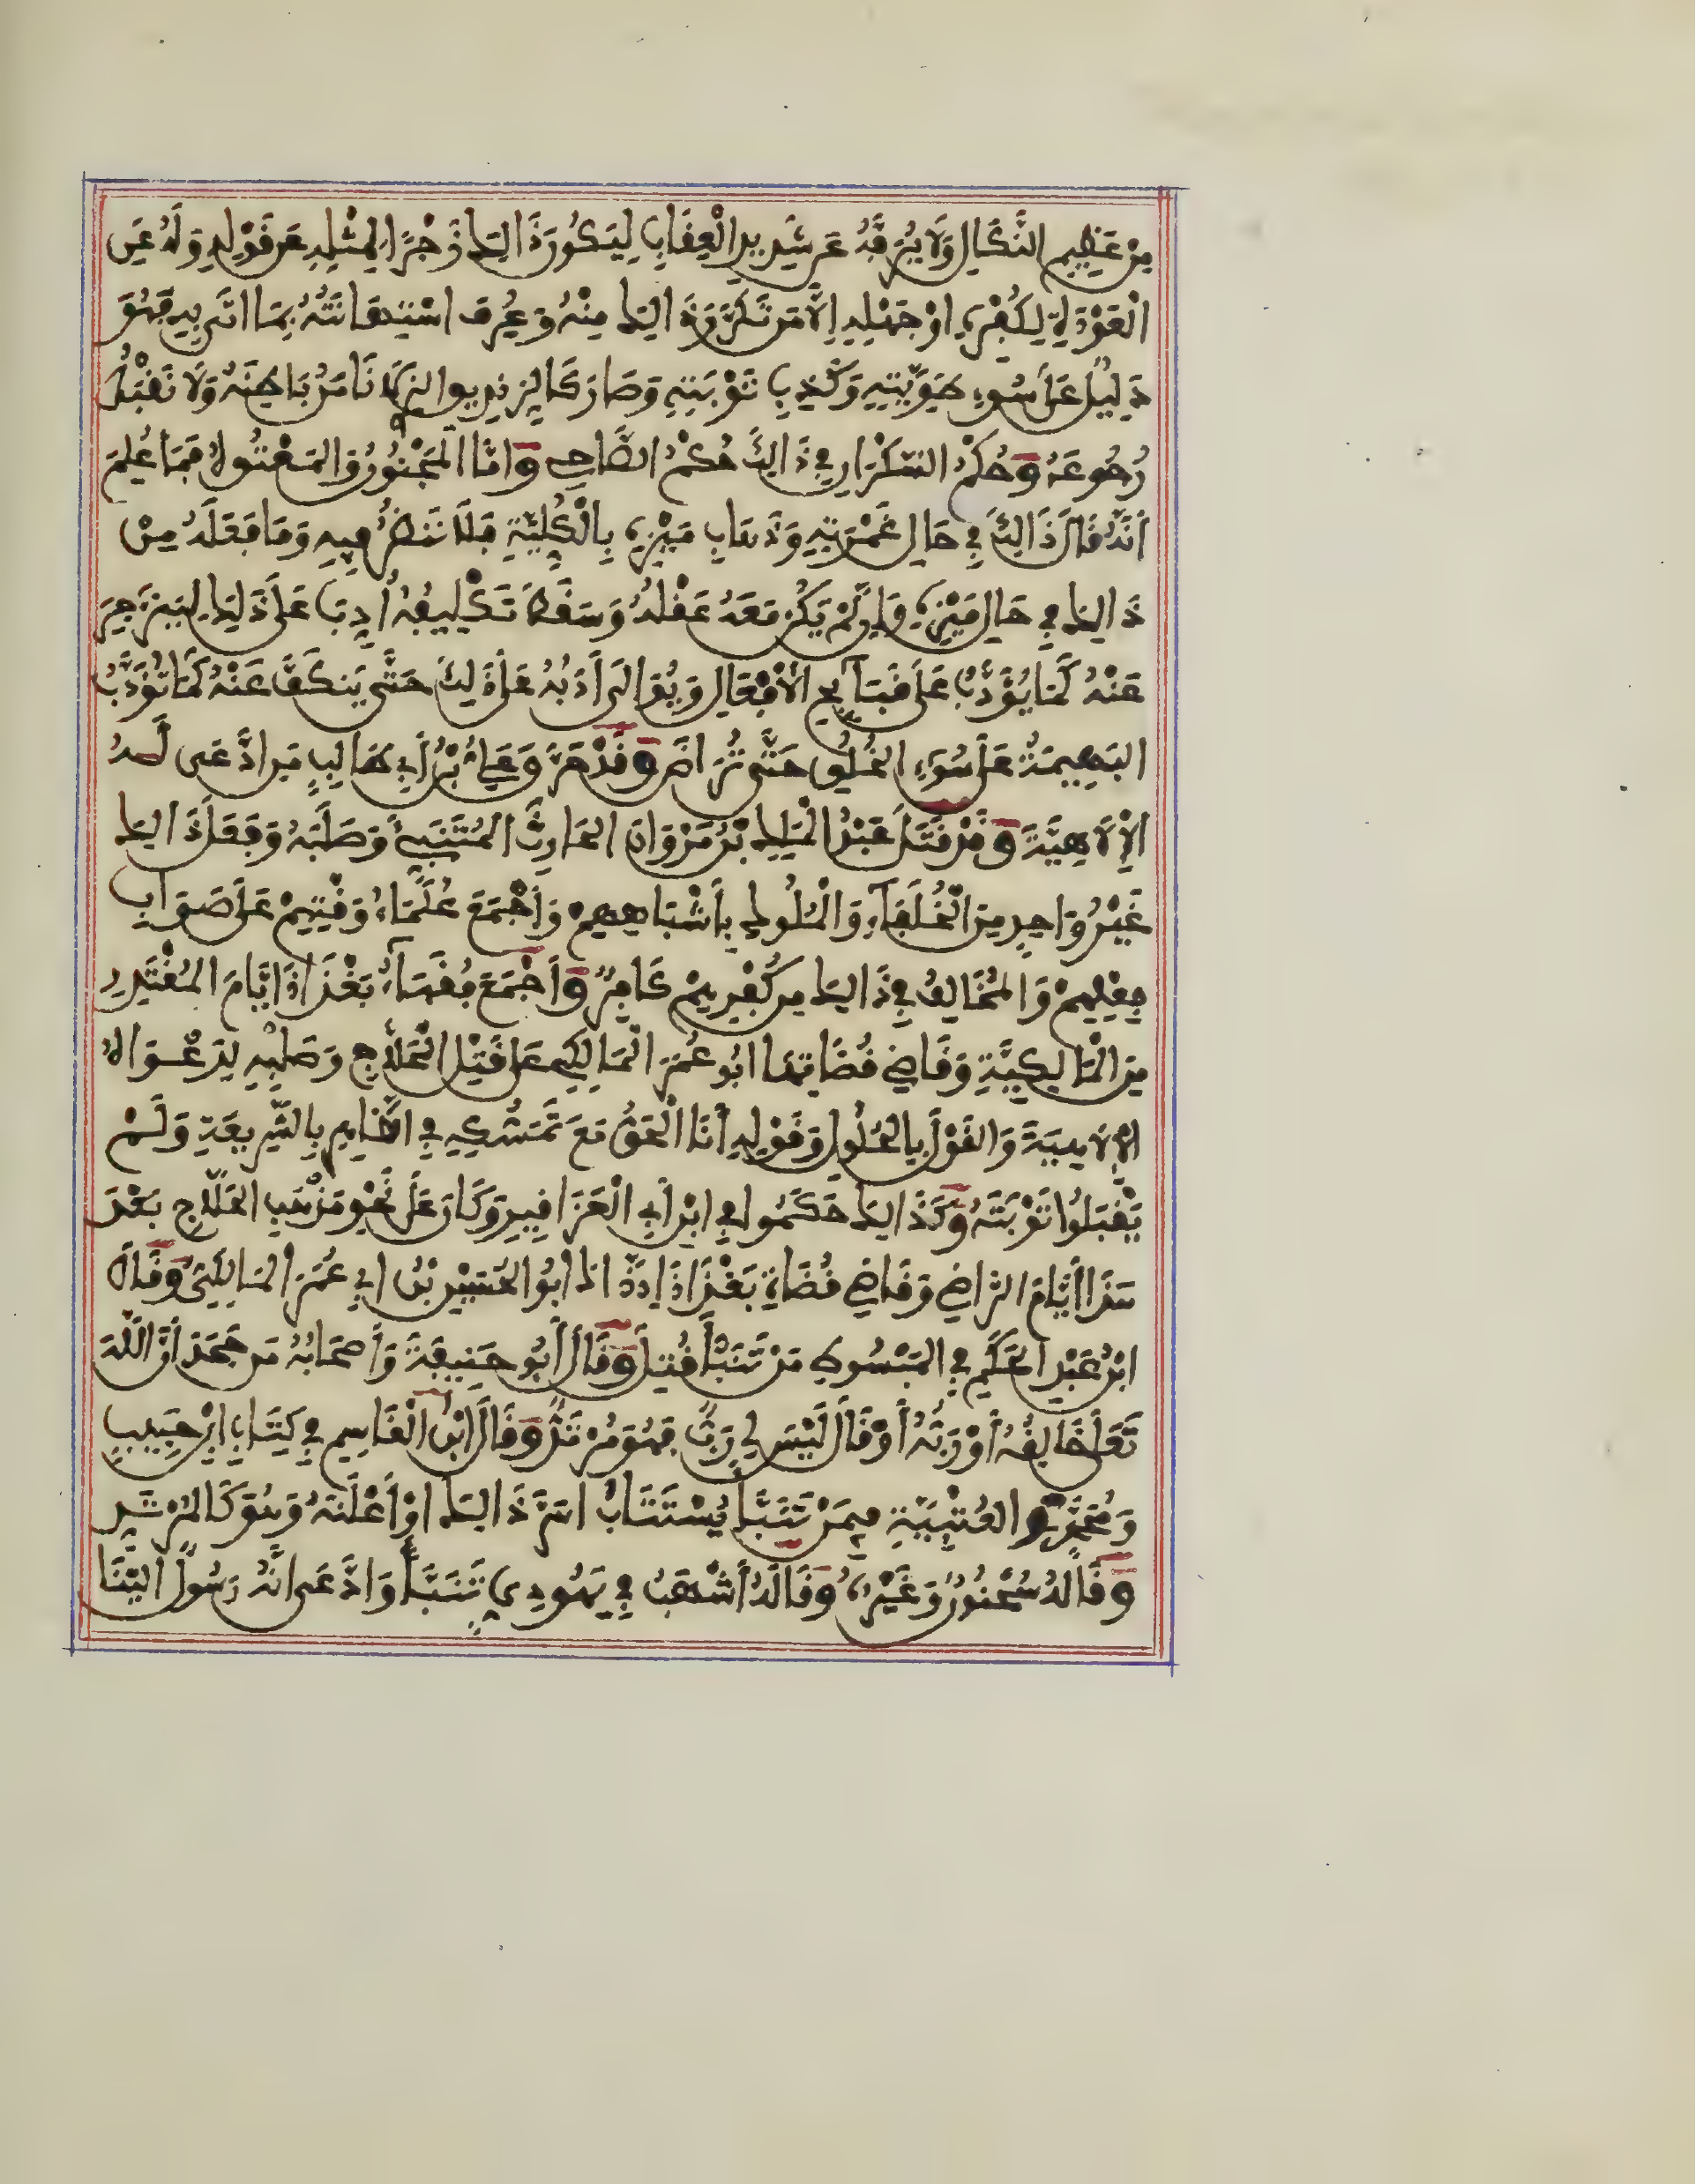 مِنْ عَظِيمِ النَّكَالِ وَلَا يُرَفَّهُ عَن شَدِيدِ الْعِقَابِ لِيَكُونَ ذَالِكَ زَجْرًا لِمِثْلِهِ عَن قَوْلِهِ وَلَهُ عَنِ
الْعَوْدَةِ لِكُفْرِهِ أَوْ جَهْلِهِ إِلَّا مَن تَكَرَّرَ ذَالِكَ مِنْهُ وَعُرِفَ اسْتِهَانَتُهُ بِمَا اتَى بِهِ فَهُوَ
دَلِيلٌ عَلَى سُوءِ طَوِيَّتِهِ وَكَذِبِ تَوْبَتِهِ وَصَارَ كَالزِنْدِيقِ الذِي لَا نَامَنُ بَاطِنَهُ وَلَا نَقْبَلُ
رُجُوعَهُ وَحُكْمُ السَّكْرَانِ فِي ذَالِكَ حُكْمُ الصَّاحِي وَامَّا الْمَجْنُونُ وَالْمَعْتُوهُ فَمَا عُلِمَ
أَنَّهُ قَالَ ذَالِكَ فِي حَالِ غَمْرَتِهِ وَذَهَابِ مَيْزِهِ بِالْكُلِّيَّةِ فَلَا نَنظُرُ فِيهِ وَمَا فَعَلَهُ مِنْ
ذَالِكَ فِي حَالِ مَيْزِهِ وَإِن لَمْ يَكُنْ مَعَهُ عَقْلُهُ وَسَقَطَ تَكْلِيفُهُ أُدِبَ عَلَى ذَلِكَ لِيَنزَجِرَ
عَنْهُ كَمَا يُؤَدَّبُ عَلَى قَبَائِحِ الْأَفْعَالِ وَيُوَالَى أَدَبُهُ عَلَى ذَلِكَ حَتَّى يَنكَفَّ عَنْهُ كَمَا تُؤَدَّبُ
الْبَهِيمَةُ عَلَى سُوءِ الْخُلُقِ حَتَّى تُرَاضَ وَقَدْ حَرَّقَ عَلِيُّ بْنُ أَبِي طَالِبٍ مَنِ ادَّعَى لَهُ
الْإِلَاهِيَّةَ وَقَدْ قَتَلَ عَبْدُ الْمَلِكِ بْنُ مَرْوَانَ الْحَارِثَ الْمُتَنَبِّيَ وَصَلَبَهُ وَفَعَلَ ذَالِكَ
غَيْرُ وَاحِدٍ مِنَ الْخُلَفَاءِ وَالْمُلُوكِ بِأَشْبَاهِهِمْ وَأَجْمَعَ عُلَمَاءُ وَقْتِهِمْ عَلَى صَوَابِ
فِعْلِهِمْ وَالْمُخَالِفُ فِي ذَالِكَ مِن كُفْرِهِمْ كَافِرٌ وَأَجْمَعَ فُقَهَاءُ بَغْدَاذَ أَيَّامَ الْمُقْتَدِرِ
مِنَ الْمَالِكِيَّةِ وَقَاضِي قُضَاتِهَا ابُو عُمَرَ الْمَالِكِي عَلَى قَتْلِ الْحَلَّاجِ وَصَلْبِهِ لِدَعْوَاهُ
الْإِلَاهِيَةَ وَالْقَوْلَ بِالْحُلُولِ وَقَوْلِهِ أَنَا الْحَقُّ مَعَ تَمَسُّكِهِ فِي الظَّاهِرِ بِالشَّرِيعَةِ وَلَمْ
يَقْبَلُوا تَوْبَتَهُ وَكَذَالِكَ حَكَمُوا فِي ابْنِ أَبِي الْعَزَاقِيرِ وَكَانَ عَلَى نَحْوِ مَذْهَبِ الْحَلَّاجِ بَعْدَ
هَذَا أَيَّامَ الرَّاضِي وَقَاضِي قُضَاةِ بَغْدَاذَ يَوْمَئِذٍ ابُو الْحُسَيْنِ بْنُ ابِي عُمَرَ الْمَالِكِيُّ وَقَالَ
ابْنُ عَبْدِ الْحَكَمِ فِي الْمَبْسُوطِ مَنْ تَنَبَّأَ قُتِلَ وَقَالَ أَبُو حَنِيفَةَ وَأَصْحَابُهُ مَن جَحَدَ أَنَّ اللَّهَ
تَعَلَى خَالِقُهُ أَوْ رَبُّهُ أَوْ قَالَ لَيْسَ لِي رَبٌّ فَهُوَ مُرْتَدٌّ وَقَالَ ابْنُ الْقَاسِمِ فِي كِتَابِ ابْنِ حَبِيبٍ
وَمُحَمَّدٍ وَالْعُتْبِيَّةِ فِيمَنْ تَنَبَّأَ يُسْتَتَابُ اسَرَّ ذَالِكَ اوْ أَعْلَنَهُ وَهُوَ كَالْمُرْتَدِّ
وَقَالَهُ سُحْنُونٌ وَغَيْرُهُ وَقَالَهُ أَشْهَبُ فِي يَهُودِيٍّ تَنَبَّأَ وَادَّعَى انَّهُ رَسُولٌ الَيْنَا